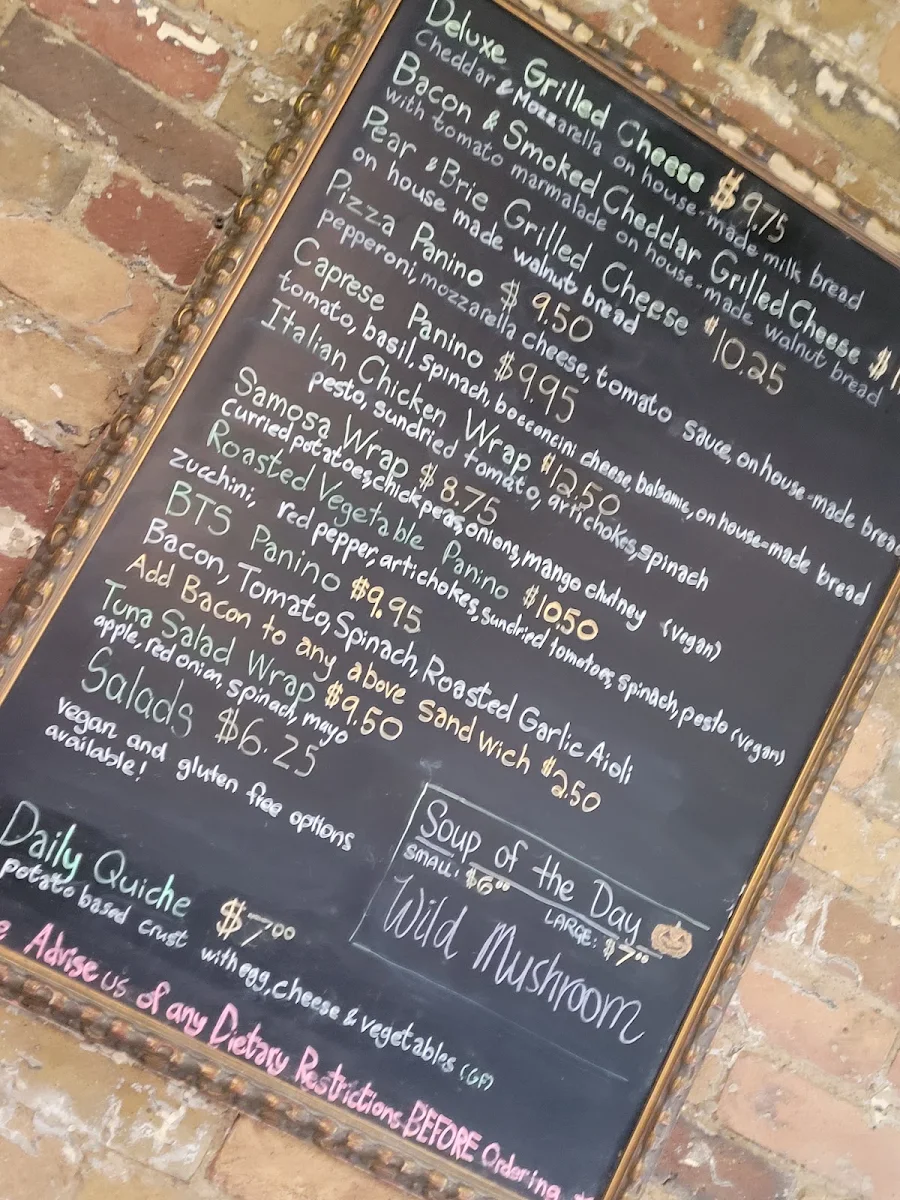 Deluxe Grilled Cheese $9.75
Cheddar & Mozzarella on house-made milk bread
Bacon & Smoked Cheddar Grilled Cheese $1
with tomato marmalade on house-made walnut bread
Pear & Brie Grilled Cheese $10.25
on house made walnut bread
Pizza Panino $9.50
pepperoni, mozzarella cheese, tomato sauce, on house-made bread
Caprese Panino $9.95
tomato, basil, spinach, bocconcini cheese, balsamic, on house-made bread
Italian Chicken Wrap $12.50
pesto, sundried tomato, artichokes, spinach
Samosa Wrap $8.75
curried potatoes, chickpeas, onions, mango chutney (vegan)
Roasted Vegetable Panino $10.50
zucchini, red pepper, artichokes, sundried tomatoes, spinach, pesto (vegan)
BTS Panino $9.95
Bacon, Tomato, Spinach, Roasted Garlic Aioli
Add Bacon to any above sandwich $2.50
Tuna Salad Wrap $9.50
apple, red onion, spinach, mayo
Salads $6.25
vegan and gluten free options
available!
Soup of the Day
SMALL: $6.00 LARGE: $7.00
Wild Mushroom
Daily Quiche $7.00
potato based crust with egg, cheese & vegetables (GF)
e Advise us of any Dietary Restrictions BEFORE Ordering